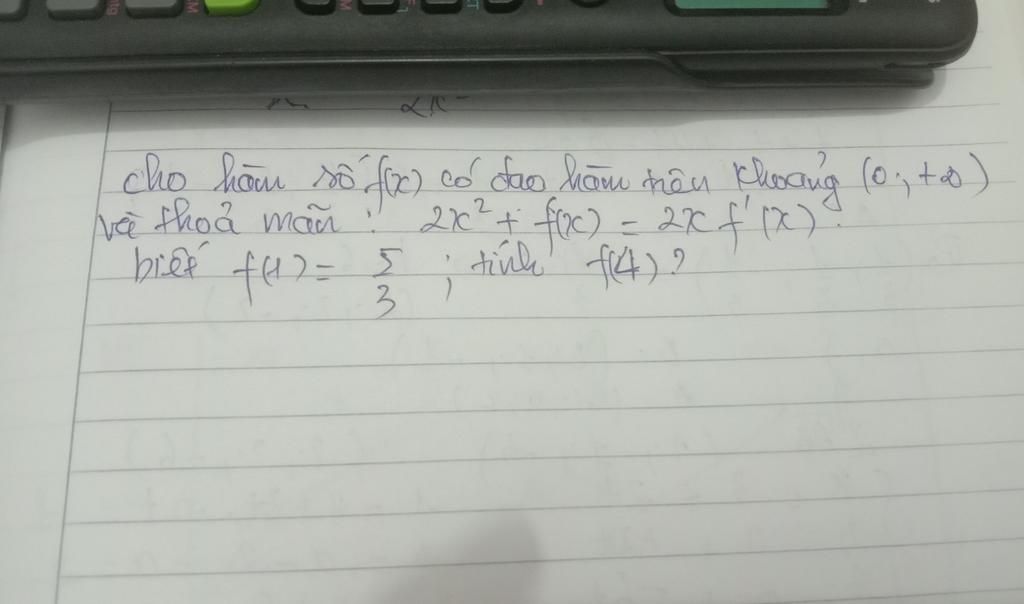 cho hàm số f(x) có đạo hàm trên khoảng (0; +∞)
và thoả mãn: 2x² + f(x) = 2x f'(x).
biết f(1) = 5/3 ; tính f(4)?